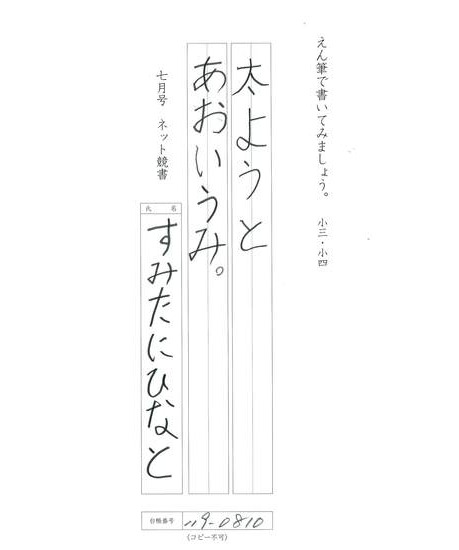 えん筆で書いてみましょう。 小三・小四
太ようと
あおいうみ。
七月号 ネット競書
氏名
すみたにひなと
台帳番号 119-0810
(コピー不可)